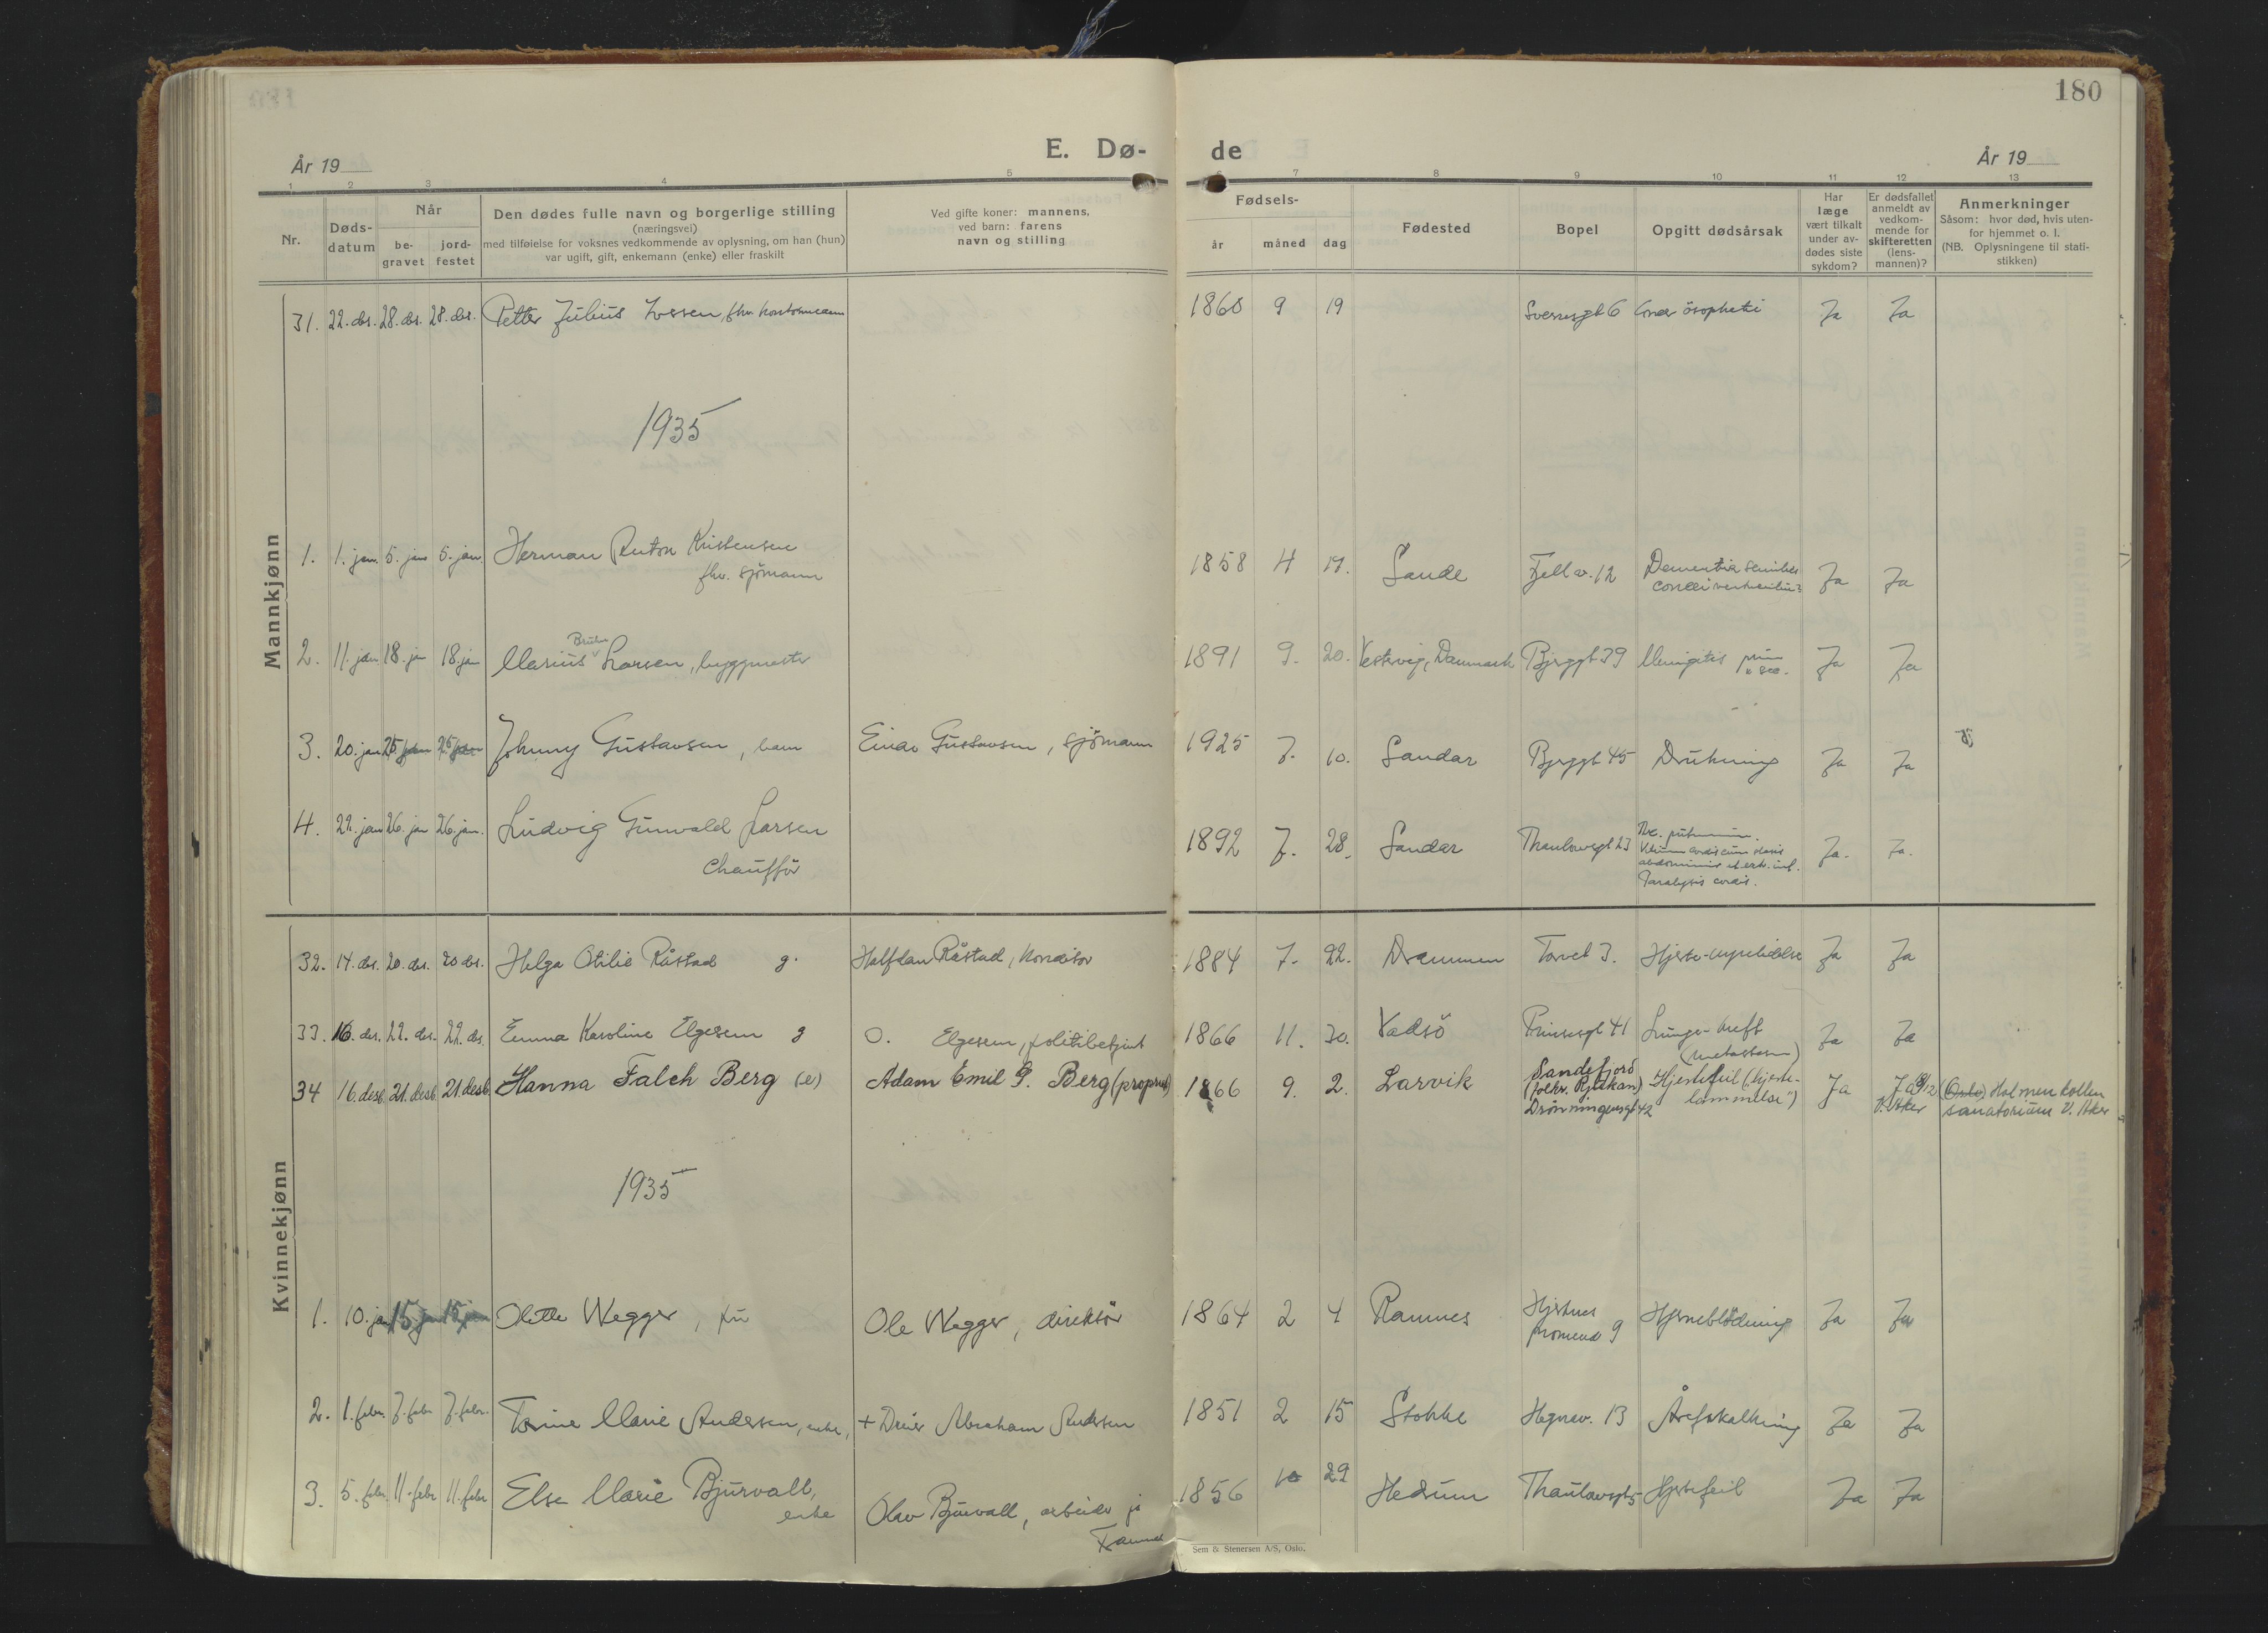 180
E. Dø- de
År 19
År 19
1 2 3 4 5 6 7 8 9 10 11 12 13
Nr.
Døds-
datum
Når
be-
gravet
jord-
festet
Den dødes fulle navn og borgerlige stilling
(næringsvei)
med tilføielse for voksnes vedkommende av oplysning, om han (hun)
var ugift, gift, enkemann (enke) eller fraskilt
Ved gifte koner: mannens,
ved barn: farens
navn og stilling
Fødsels-
år måned dag
Fødested
Bopel
Opgitt dødsårsak
Har
læge
vært tilkalt
under av-
dødes siste
sykdom?
Er dødsfallet
anmeldt av
vedkom-
mende for
skifteretten
(lens-
mannen)?
Anmerkninger
Såsom: hvor død, hvis uten-
for hjemmet o. l.
(NB. Oplysningene til stati-
stikken)
Mannkjønn
31. 22. des. 28. des. 28. des. Petter Julius Iversen, fhv. 1860 9 19 6 Ja Ja
1935
1. 1. jan. 5. jan 5. jan. Herman Anton Kristensen 1858 4 17. Sande Fjell v. 12 Dementia senilis Ja Ja
fhv. sjömann
Bruhn
2. 11. jan 18. jan 18. jan Marius Larsen, byggmester 1891 9. 20. Vestervig, Danmark Bjerggt 39 Ja Ja
3. 20. jan 25 jan 25 jan Johnny Gustavsen, barn Einar Gustavsen, sjömann 1925 7. 10. Sandar Bjerggt 45 Drukning Ja Ja
4. 22. jan 26. jan 26. jan. Ludvig Gunvald Larsen 1892 7. 28. Sandar Thaulowsgt 23 Ja. Ja.
chaufför
Paralysis cordis.
Kvinnekjønn
32. 14. des. 20. des. 20 des. Helga Otilie Råstad g. Halfdan Råstad, konditor 1884 7. 22. Drammen Torvet 3. Hjerte-nyrelidelse Ja Ja
33. 16. des. 22. des. 22. des. Emma Karoline Elgesem g O. Elgesem, politibetjent 1866 11. 30. Vadsö Prinsensgt 41 Lunge-kreft Ja Ja
(metastaser)
34 16. desb. 21. desb. 21. desb. Hanna Falch Berg (e) Adam Emil G. Berg (propriet) 1866 9. 2. Larvik Sandefjord Hjertefeil ("hjerte- Ja Ja 18/12 (Oslo) Holmenkollen
(folkr. Rjukan) lammelse") V. Aker sanatorium V. Aker
Dronningensgt 42
1935
1. 10. jan 15. jan 15. jan Olette Wegger, fru Ole Wegger, direktör 1864 2 4 Ramnes Hjertnes Hjerneblödning Ja Ja
promenade 9
2. 1. febr. 7. febr 7. febr. Torine Marie Andersen, enke, + Abraham Andersen 1851 2 15 Stokke Hegnav. 13 Åreforkalkning Ja Ja
3. 5. febr. 11. febr 11. febr Else Marie Bjurvall, Olav Bjurvall, arbeider på 1856 10 29 Hedrum Thaulowsgt 5 Hjertefeil Ja Ja
enke Framnæs
Sem & Stenersen A/S, Oslo.